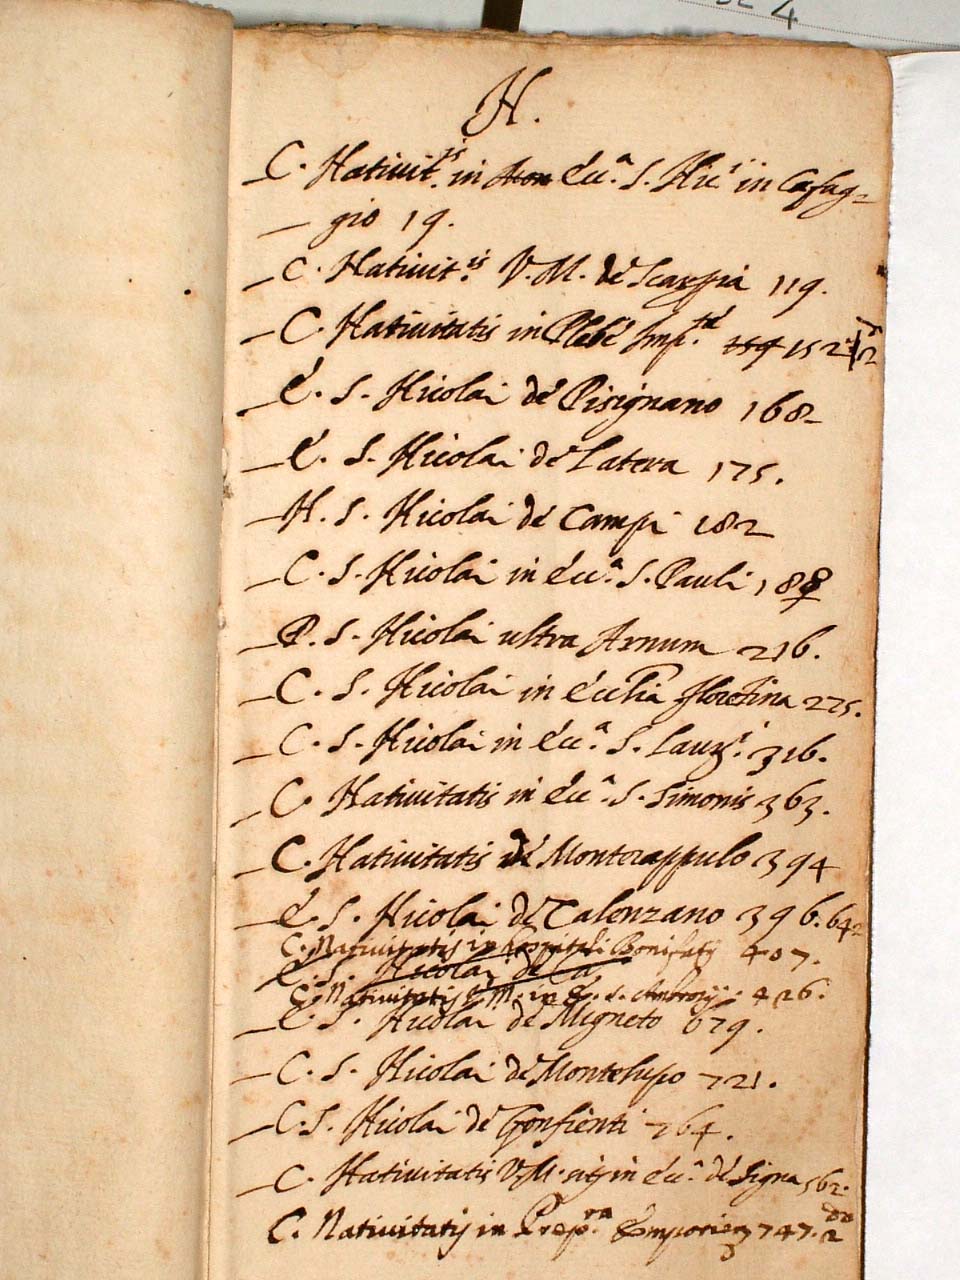 N.
C. Nativit.is in E͠cc.a S. Nic.i in Cafag=
gio 19.
C. Nativit.is V. M. de Scarpia 119.
C. Nativitatis in Plebe Imp.tæ 159 152
E. S. Nicolai de Pisignano 168
E. S. Nicolai de Latera 175.
H. S. Nicolai de Campi 182
C. S. Nicolai in Ecc.a S. Pauli 188
P. S. Nicolai ultra Arnum 216.
C. S. Nicolai in Ecclia Floretina 225.
C. S. Nicolai in Ecc.a S. Laur.i 316.
C. Nativitatis in Ecc.a S. Simonis 363.
C. Nativitatis de Monterappulo 394
E. S. Nicolai de Calenzano 396. 642
C. Nativitatis in hospitali Bonifatij 407.
E. S. Nicolai de Ca
C. Nativitatis V. M. in E. S. Ambrosij: 426.
E. S. Nicolai de Migneto 679.
C. S. Nicolai de Montelupo 721.
C. S. Nicolai de Gonfienti 764.
C. Nativitatis V. M. sit in Ecc.a de Signa 562.
C. Nativitatis in Prep.ra Emporien 747. 2do